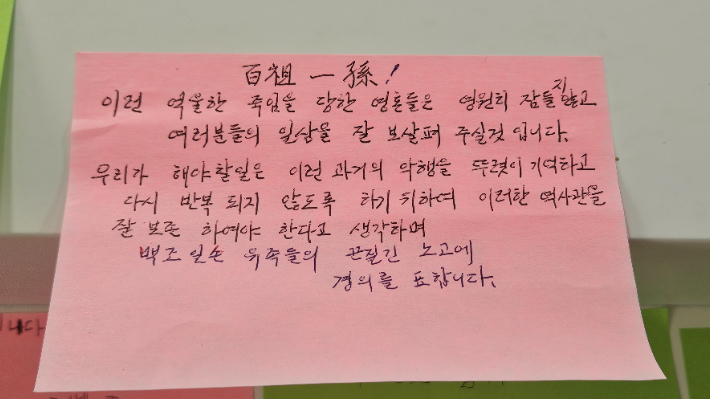 百祖一孫!
이런 억울한 죽임을 당한 영혼들은 영원히 잠들지 않고
여러분들의 일상을 잘 보살펴 주실것 입니다.
우리가 해야할일은 이런 과거의 악행을 뚜렷이 기억하고
다시 반복 되지 않도록 하기 위하여 이러한 역사관을
잘 보존 하여야 한다고 생각하며
백조일손 유족들의 끈질긴 노고에
경의를 표합니다.
니다